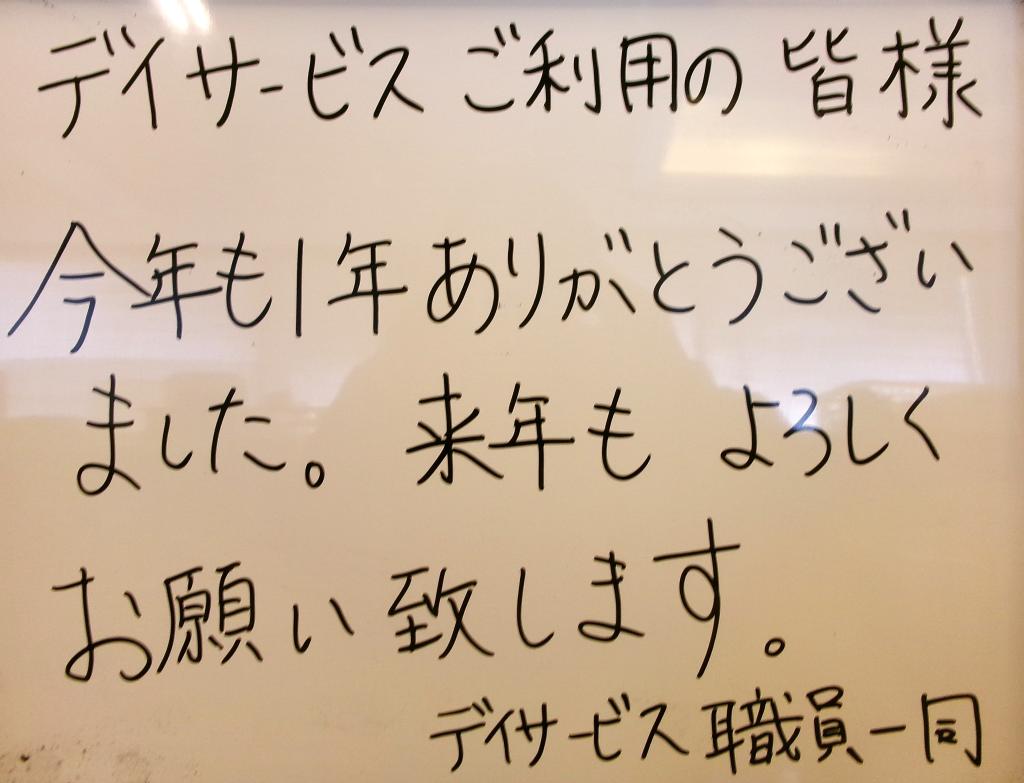 デイサービス ご利用の 皆様
今年も1年ありがとうござい
ました。 来年も よろしく
お願い致します。
デイサービス 職員一同